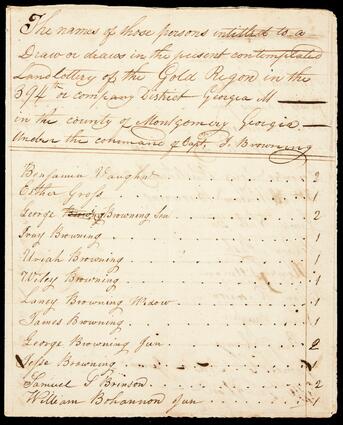 The names of those persons intitled to a
Draw or draws in the present contemplated
Land lottery of the Gold Region in the
394th or company District Georgia M
in the county of Montgomery Georgia
Under the command of Capt. J. Browning
Benjamin Vaughn 2
Esther Gross 1
George Browning Sen 2
Tony Browning 1
Uriah Browning 1
Wiley Browning 1
Laney Browning Widow 1
James Browning 1
George Browning Jun 2
Jesse Browning 1
Samuel S Brinson 2
William Bohannon Jun 1